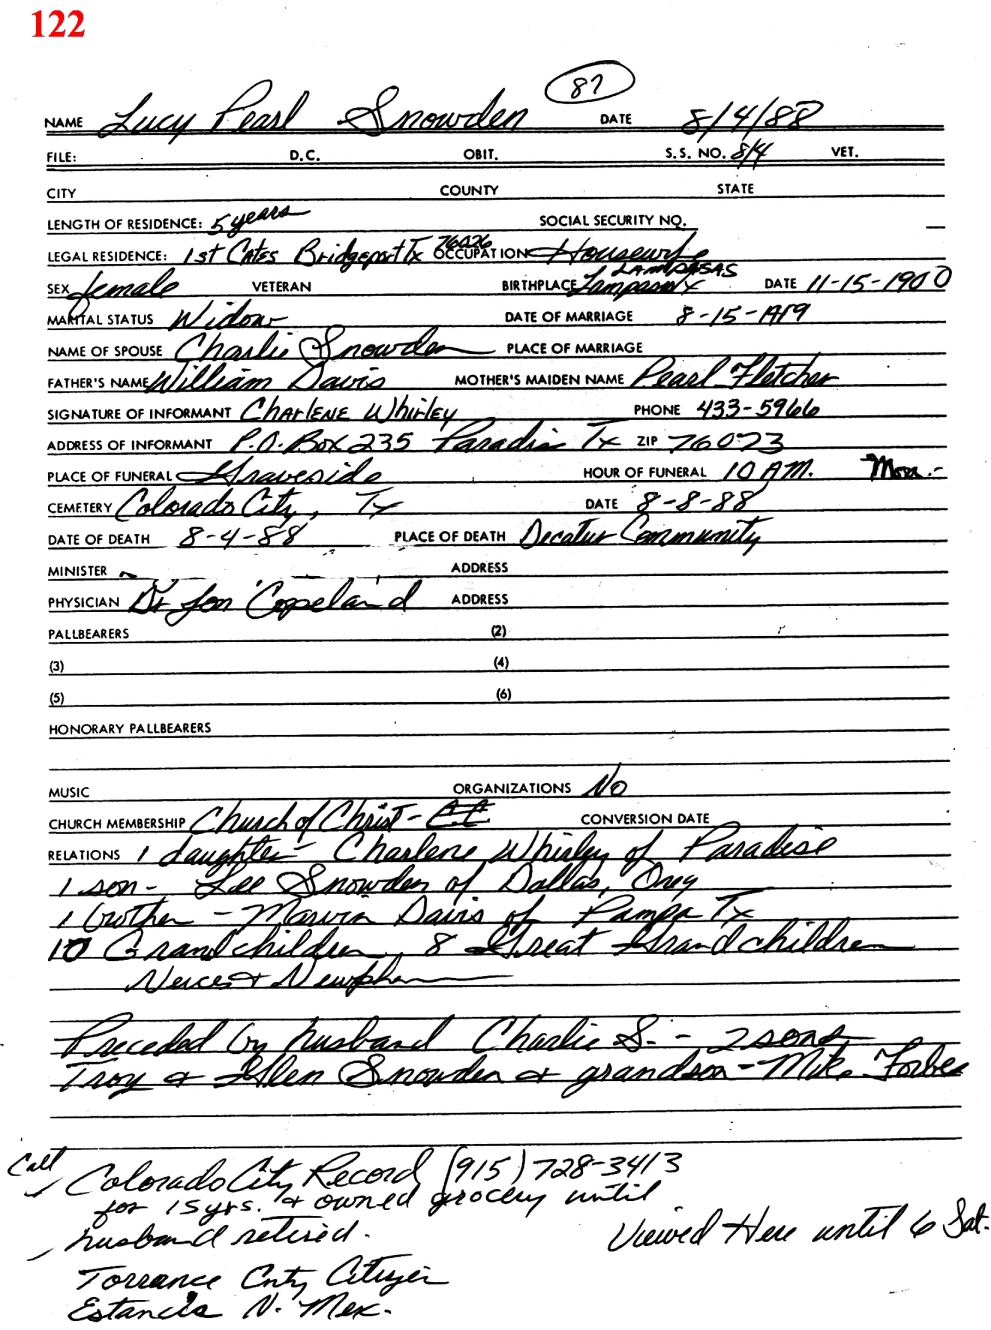 122
87
NAME Lucy Pearl Snowden DATE 8/4/88
FILE: D.C. OBIT. S.S. NO. 8/4 VET.
CITY COUNTY STATE
LENGTH OF RESIDENCE: 5 years SOCIAL SECURITY NO. —
LEGAL RESIDENCE: 1st Cates Bridgeport Tx 76026 OCCUPATION Housewife
LAMPASAS
SEX female VETERAN BIRTHPLACE Tx DATE 11-15-1900
MARITAL STATUS Widow DATE OF MARRIAGE 8-15-1919
NAME OF SPOUSE Charlie Snowden PLACE OF MARRIAGE
FATHER'S NAME William Davis MOTHER'S MAIDEN NAME Pearl Fletcher
SIGNATURE OF INFORMANT Charlene Whirley PHONE 433-5966
ADDRESS OF INFORMANT P.O. Box 235 Paradise Tx ZIP 76073
PLACE OF FUNERAL Graveside HOUR OF FUNERAL 10 A.M. Mon.-
CEMETERY Colorado City, Tx DATE 8-8-88
DATE OF DEATH 8-4-88 PLACE OF DEATH Decatur Community
MINISTER ADDRESS
PHYSICIAN Dr Jon Copeland ADDRESS
PALLBEARERS (2)
(3) (4)
(5) (6)
HONORARY PALLBEARERS
MUSIC ORGANIZATIONS No
CHURCH MEMBERSHIP Church of Christ - CONVERSION DATE
RELATIONS 1 daughter - Charlene Whirley of Paradise
1 son - Lee Snowden of Dallas, Oreg
1 brother - Marvin Davis of Pampa Tx
10 Grandchildren, 8 Great Grandchildren
Neices &
Preceded by husband Charlie S. - 2 sons
Troy & Glen Snowden & grandson - Mike Forbes
Call Colorado City Record (915) 728-3413
for 15 yrs. & owned grocery until
husband retired.
Viewed Here until 6 Sat.
Torrance Cnty Citizen
Estancia N. Mex.